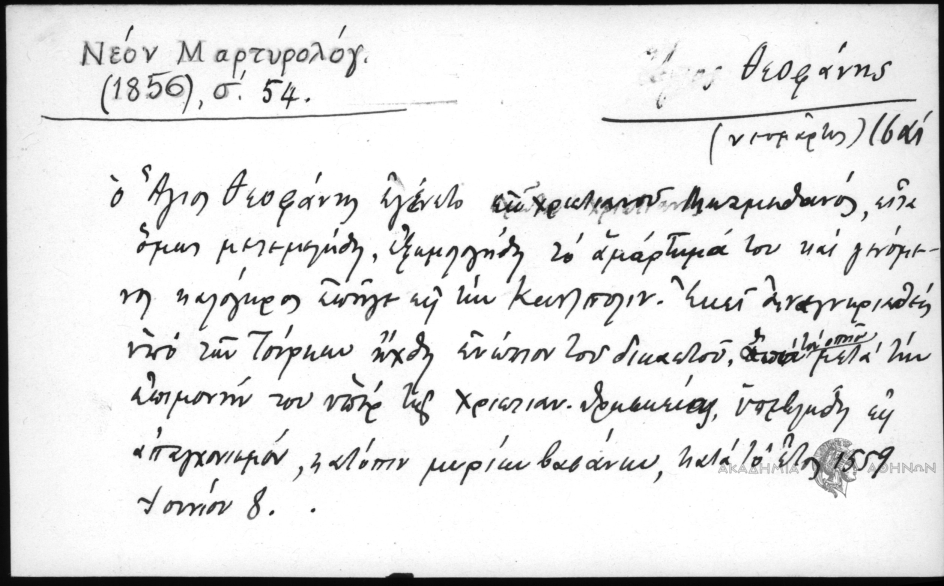 Νέον Μαρτυρολόγ.
(1856), σ. 54.
Ἅγιος Θεοφάνης
(νεομάρτυς)
ὁ Ἅγιος Θεοφάνης ἐγένετο Μωαμεθανός, εἶτα
ὅμως μετεμελήθη, ἐξωμολογήθη τὸ ἁμάρτημά του καὶ γενόμε-
νος καλόγηρος ἐπῆγε εἰς τὴν Κων/πολιν. Ἐκεῖ ἀναγνωρισθείς
ὑπό τῶν Τούρκων ἤχθη ἐνώπιον τοῦ δικαστοῦ, μετά τὴν
ἐπιμονήν του ὑπέρ τῆς Χριστιαν. θρησκείας, ὑπεβλήθη εἰς
ἀπαγχονισμόν, κατόπιν μυρίων βασάνων, κατά τὸ ἔτος 1559
Ἰουνίου 8.
ΑΚΑΔΗΜΙΑ ΑΘΗΝΩΝ